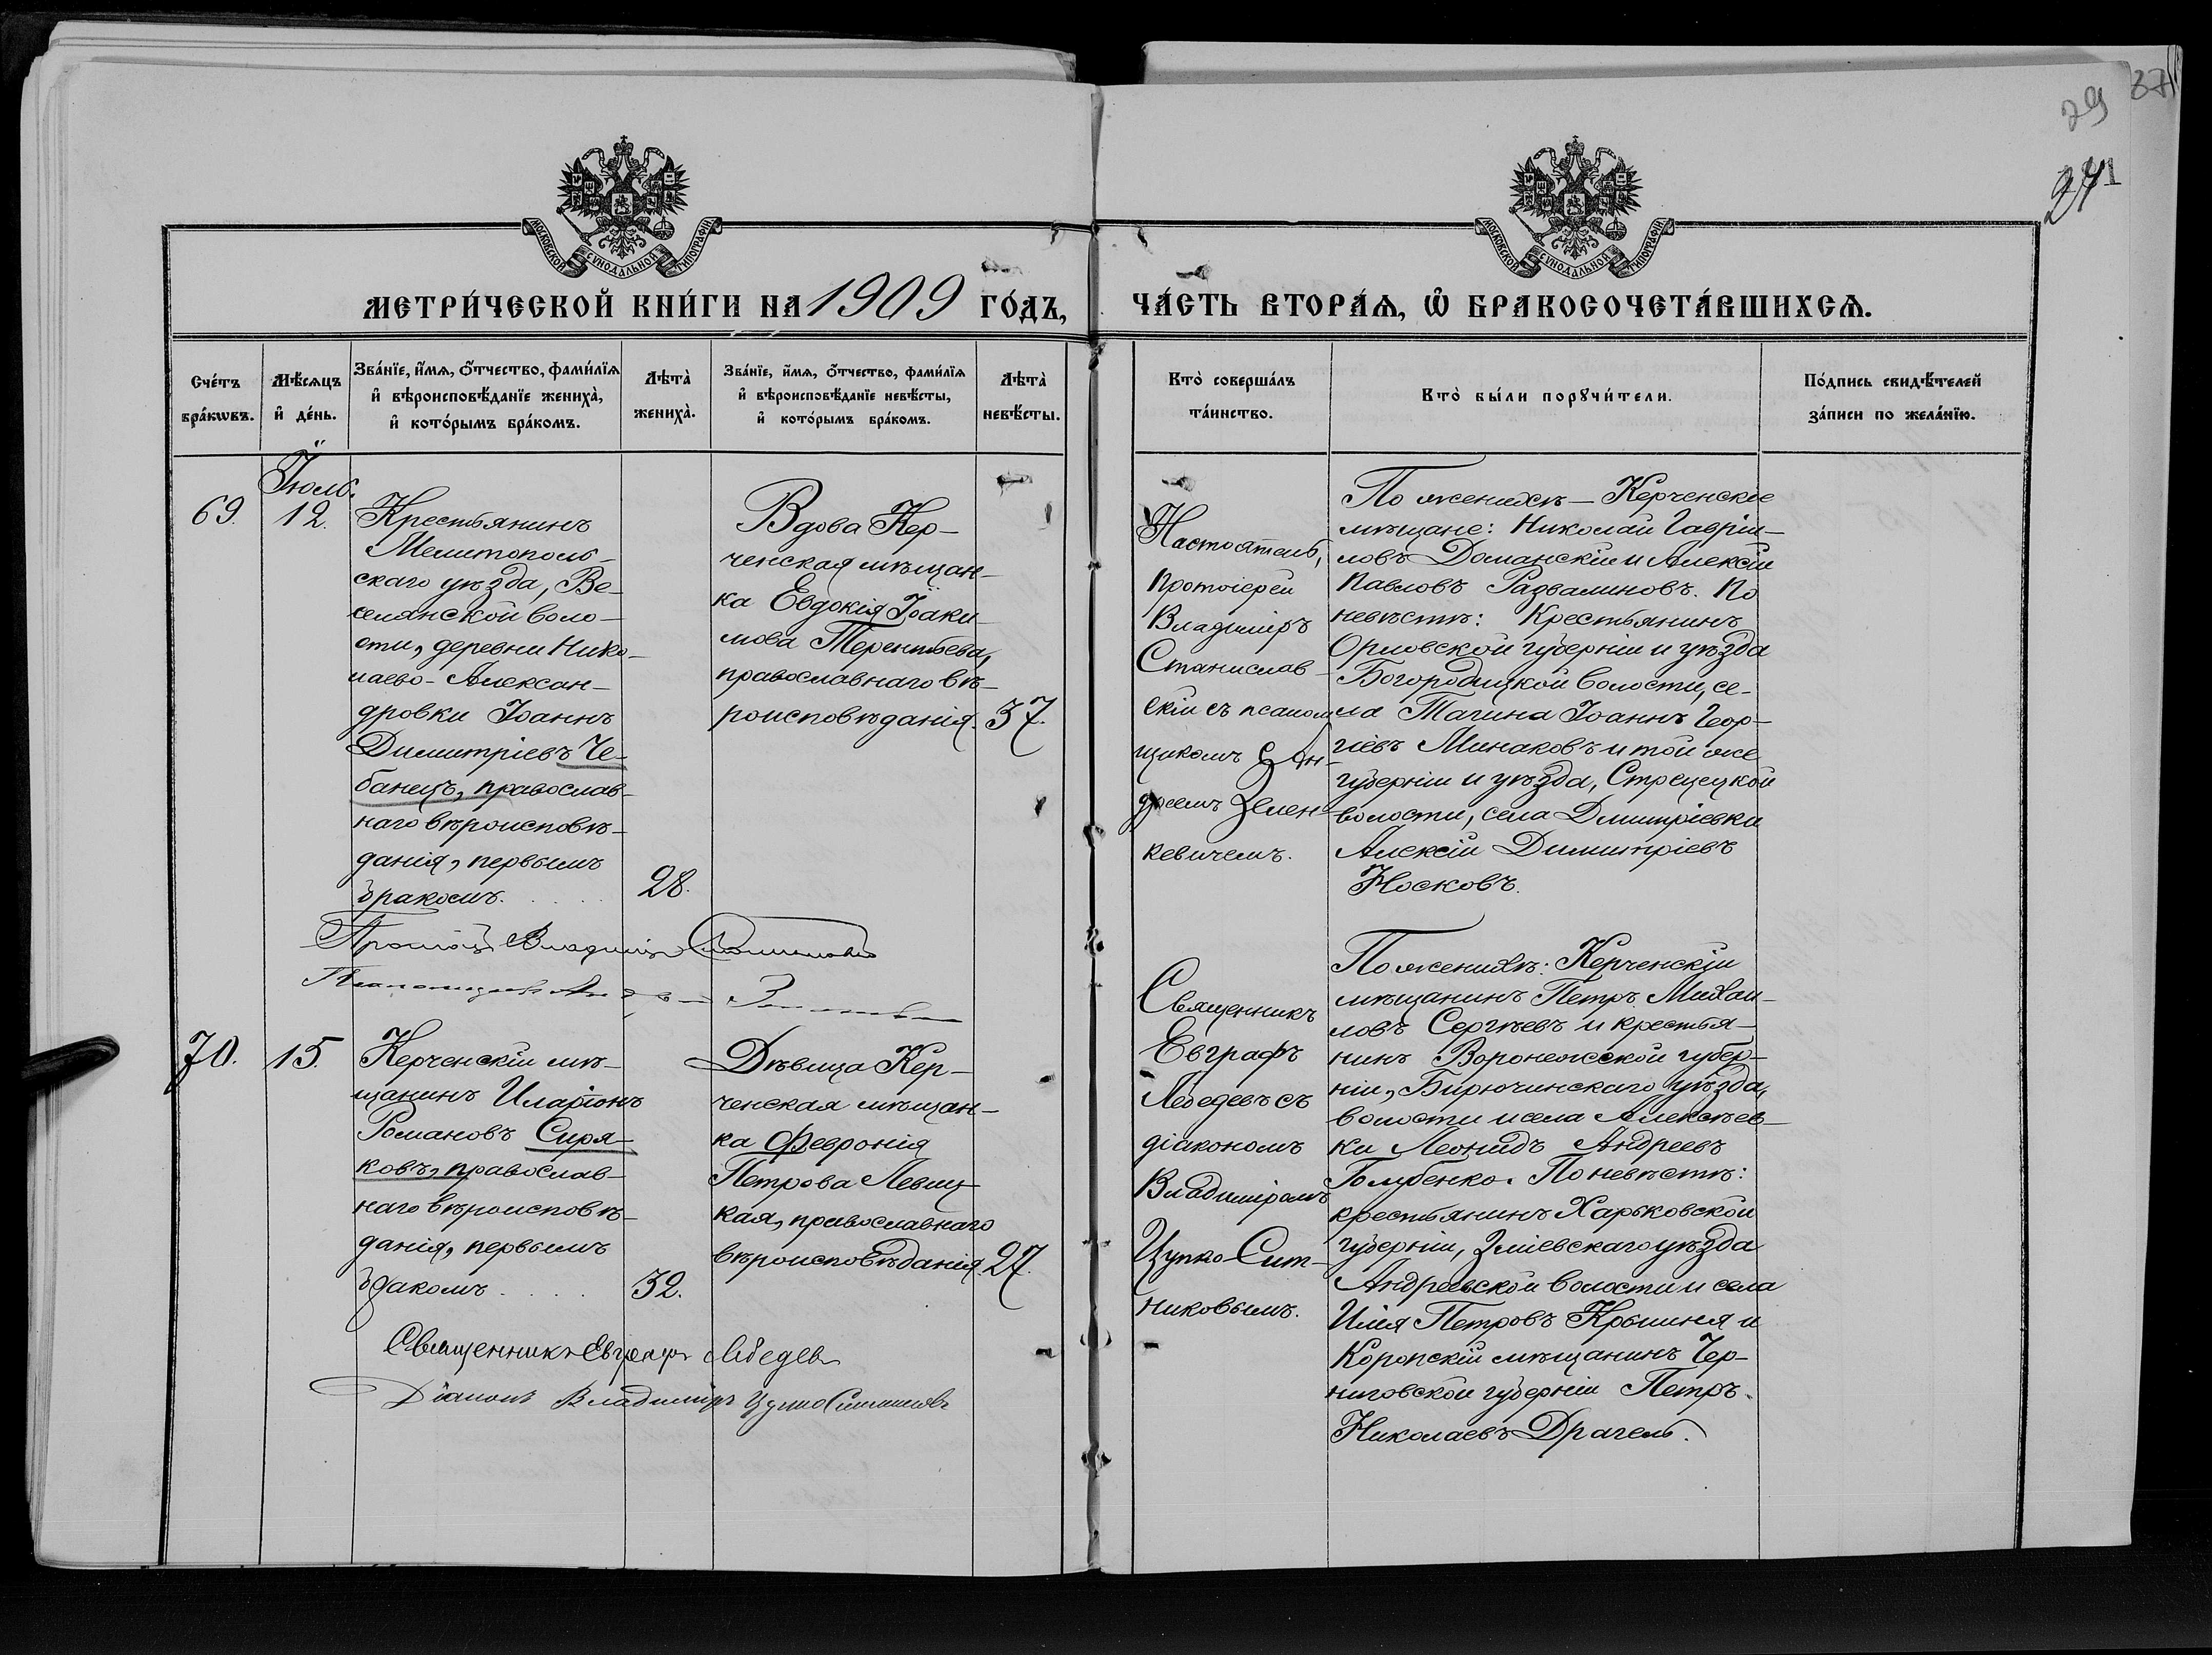 29 37
271
МОСКОВСКОЙ СѴНОДАЛЬНОЙ ТИПОГРАФІИ
МОСКОВСКОЙ СѴНОДАЛЬНОЙ ТИПОГРАФІИ
МЕТРИ́ЧЕСКОЙ КНИ́ГИ НА 1909 ГО́ДЪ,
ЧА́СТЬ ВТОРА́Ѧ, Ѽ БРАКОСОЧЕТА́ВШИХСѦ.
Сче́тъ
бра́кѡвъ.
Мѣ́сѧцъ
и҆ де́нь.
Зва́нїе, и҆́мѧ, ѻ҆́тчество, фами́лїѧ
и҆ вѣроисповѣ́данїе жениха̀,
и҆ кото́рымъ бра́комъ.
Лѣта̀
жениха̀.
Зва́нїе, и҆́мѧ, ѻ҆́тчество, фами́лїѧ
и҆ вѣроисповѣ́данїе невѣ́сты,
и҆ кото́рымъ бра́комъ.
Лѣта̀
невѣ́сты.
Кто̀ соверша́лъ
та́инство.
Кто̀ бы́ли порꙋчи́тели.
По́дпись свидѣ́телей
за́писи по жела́нїю.
Іюль.
69.
12.
Крестьянинъ
Мелитополь-
скаго уѣзда, Ве-
селянской воло-
сти, деревни Нико-
лаево-Алексан-
дровки Іоаннъ
Димитріевъ Че-
банецъ, православ-
наго вѣроисповѣ-
данія, первымъ
бракомъ.
28.
Вдова Кер-
ченская мѣщан-
ка Евдокія Іоаки-
мова Терентьева,
православнаго вѣ-
роисповѣданія.
37.
Настоятель,
Протоіерей
Владиміръ
Станислав-
скій съ псалом-
щикомъ Ан-
дреемъ Зелен-
кевичемъ.
По женихѣ - Керченскіе
мѣщане: Николай Гавріи-
ловъ Доманскій и Алексій
Павловъ Развалиновъ. По
невѣстѣ: Крестьянинъ
Орловской губерніи и уѣзда
Богородицкой волости, се-
ла Тагина Іоаннъ Геор-
гіевъ Минаковъ и той же
губерніи и уѣзда, Стрецецкой
волости, села Дмитріевки
Алексій Димитріевъ
Носковъ.
Владиміръ
70.
15.
Керченскій мѣ-
щанинъ Иларіонъ
Романовъ Сиря-
ковъ, православ-
наго вѣроисповѣ-
данія, первымъ
бракомъ
32.
Дѣвица Кер-
ченская мѣщан-
ка Февронія
Петрова Левиц-
кая, православнаго
вѣроисповѣданія.
27.
Священникъ
Евграфъ
Лебедевъ съ
діакономъ
Владиміромъ
Цупко-Сит-
никовымъ.
По женихѣ: Керченскій
мѣщанинъ Петръ Михаи-
ловъ Сергѣевъ и крестья-
нинъ Воронежской губер-
ніи, Бирючинскаго уѣзда,
волости и села Алексѣев-
ки Леонидъ Андреевъ
Голубенко. По невѣстѣ:
крестьянинъ Харьковской
губерніи, Зміевскаго уѣзда
Андреевской волости и села
Илія Петровъ Крышня и
Коропскій мѣщанинъ Чер-
ниговской губерніи Петръ
Николаевъ Драгель.
Священникъ Евграфъ Лебедевъ
Діаконъ Владиміръ Цупко Ситниковъ